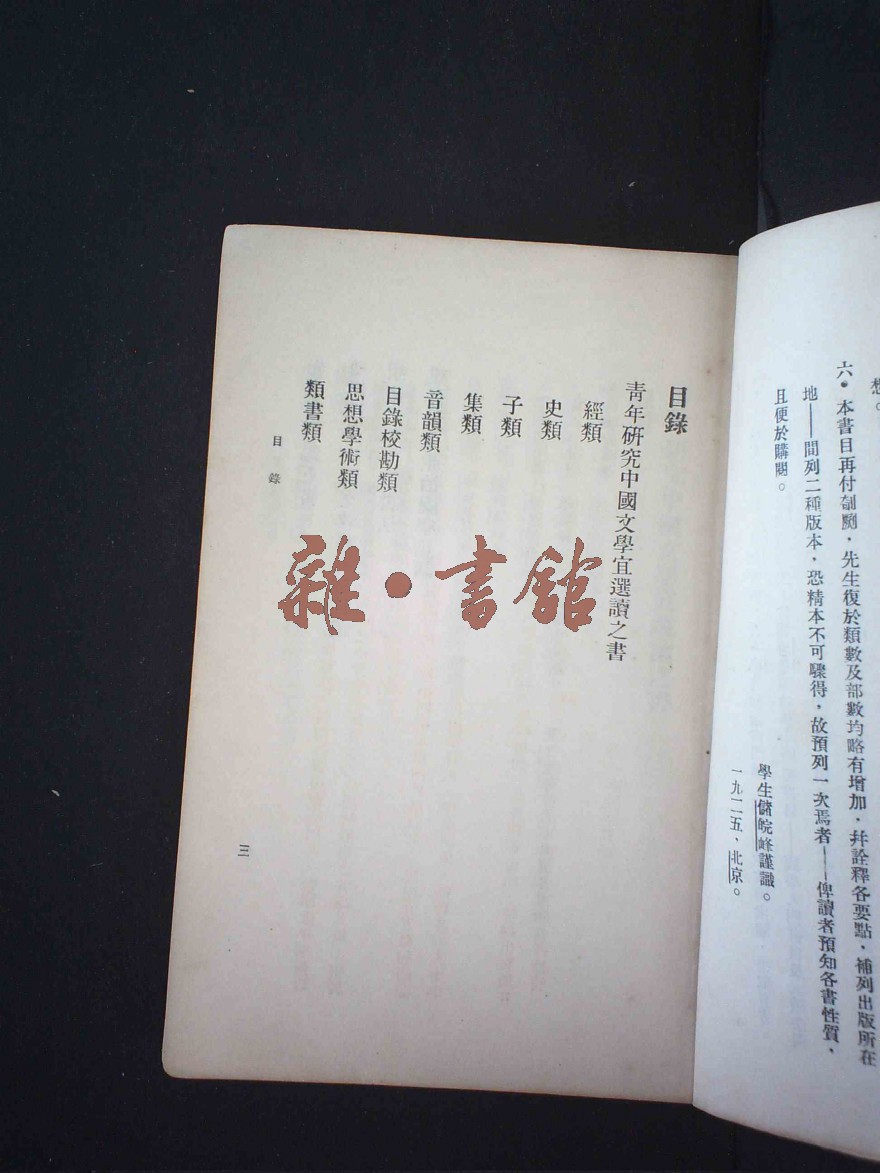 想。
六．本書目再付剞劂，先生復於類數及部數均略有增加，幷詮釋各要點，補列出版所在
地——間列二種版本，恐精本不可驟得，故預列一次焉者——俾讀者預知各書性質，
且便於購閱。
學生儲皖峰謹識。
一九二五，北京。
目錄
靑年研究中國文學宜選讀之書
經類
史類
子類
集類
音韻類
目錄校勘類
思想學術類
類書類
目錄
三
雜·書館